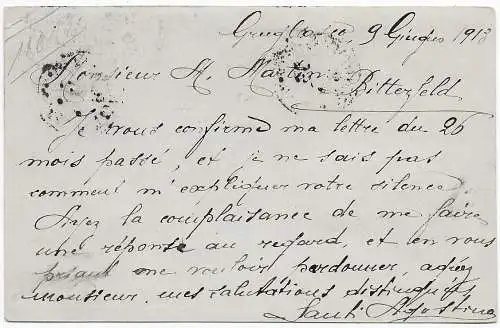 9 Giugno 1913
Monsieur M. Martin
Bitterfeld
Je vous confirme ma lettre du 26
mois passé, et je ne sais pas
comment m'expliquer votre silence.
Ayez la complaisance de me faire
une réponse au regard, et en vous
priant me vouloir pardonner, agréez
monsieur, mes salutations distingués
Santi Agostino